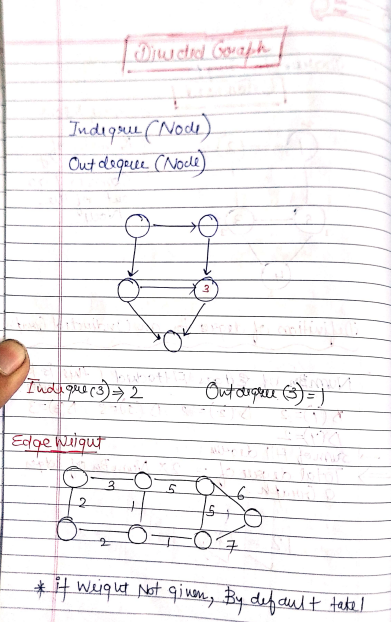 Directed Graph
Indegree (Node)
Outdegree (Node)
3
Indegree(3) ⇒ 2 Outdegree (3) = 1
Edge Weight
3 5 6
2 1 5
2 1 7
* if Weight Not given, By default take 1